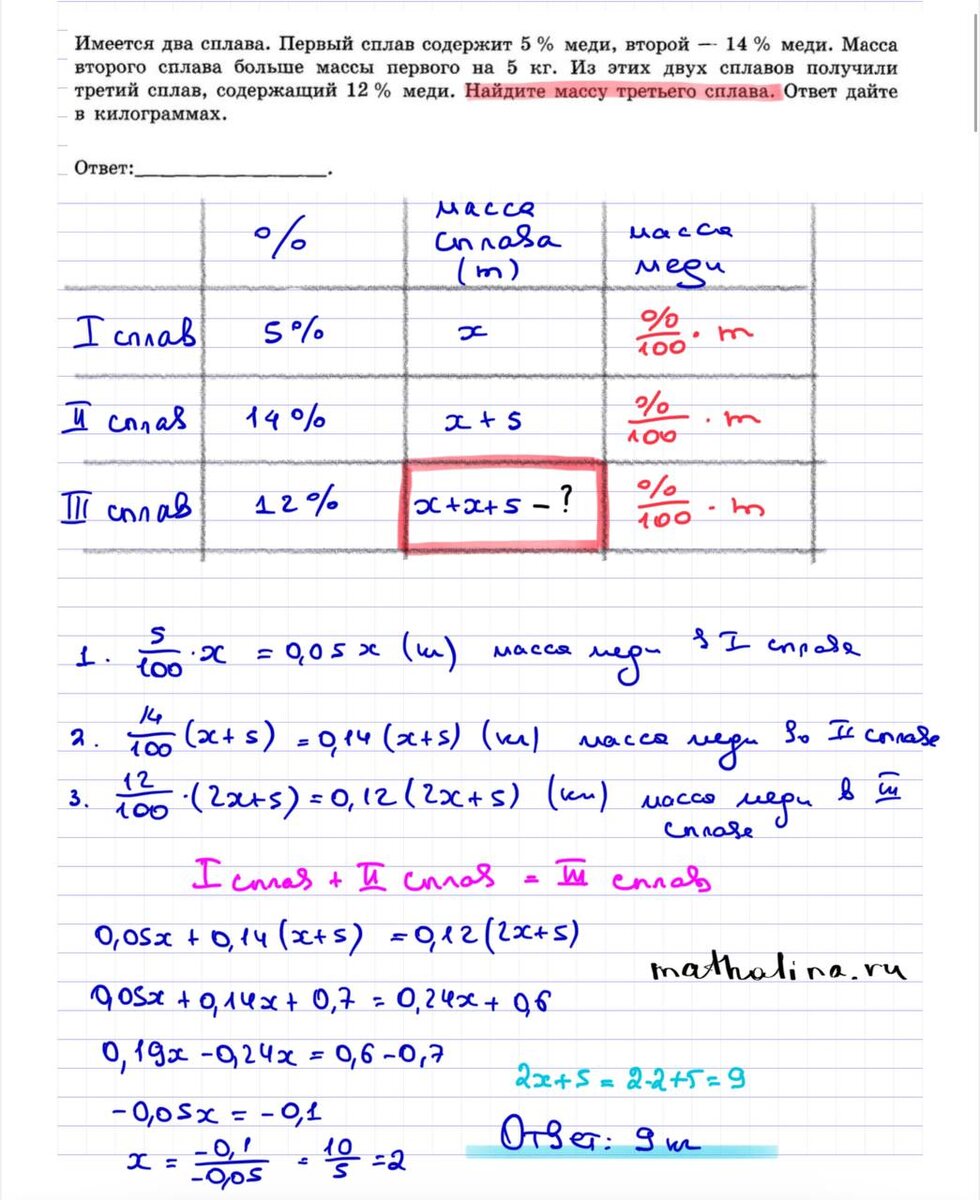 Имеется два сплава. Первый сплав содержит 5 % меди, второй — 14 % меди. Масса
второго сплава больше массы первого на 5 кг. Из этих двух сплавов получили
третий сплав, содержащий 12 % меди. Найдите массу третьего сплава. Ответ дайте
в килограммах.
Ответ:___________________.
%
масса
сплава
(m)
масса
меди
I сплав 5% x %/100 · m
II сплав 14% x + 5 %/100 · m
III сплав 12% x+x+5 – ? %/100 · m
1. 5/100 · x = 0,05x (кг) масса меди в I сплаве
2. 14/100 (x+5) = 0,14(x+5) (кг) масса меди во II сплаве
3. 12/100 · (2x+5) = 0,12(2x+5) (кг) масса меди в III
сплаве
I сплав + II сплав = III сплав
0,05x + 0,14(x+5) = 0,12(2x+5)
mathalina.ru
0,05x + 0,14x + 0,7 = 0,24x + 0,6
0,19x - 0,24x = 0,6 - 0,7
2x+5 = 2·2+5 = 9
-0,05x = -0,1
Ответ: 9 кг
x = -0,1/-0,05 = 10/5 = 2